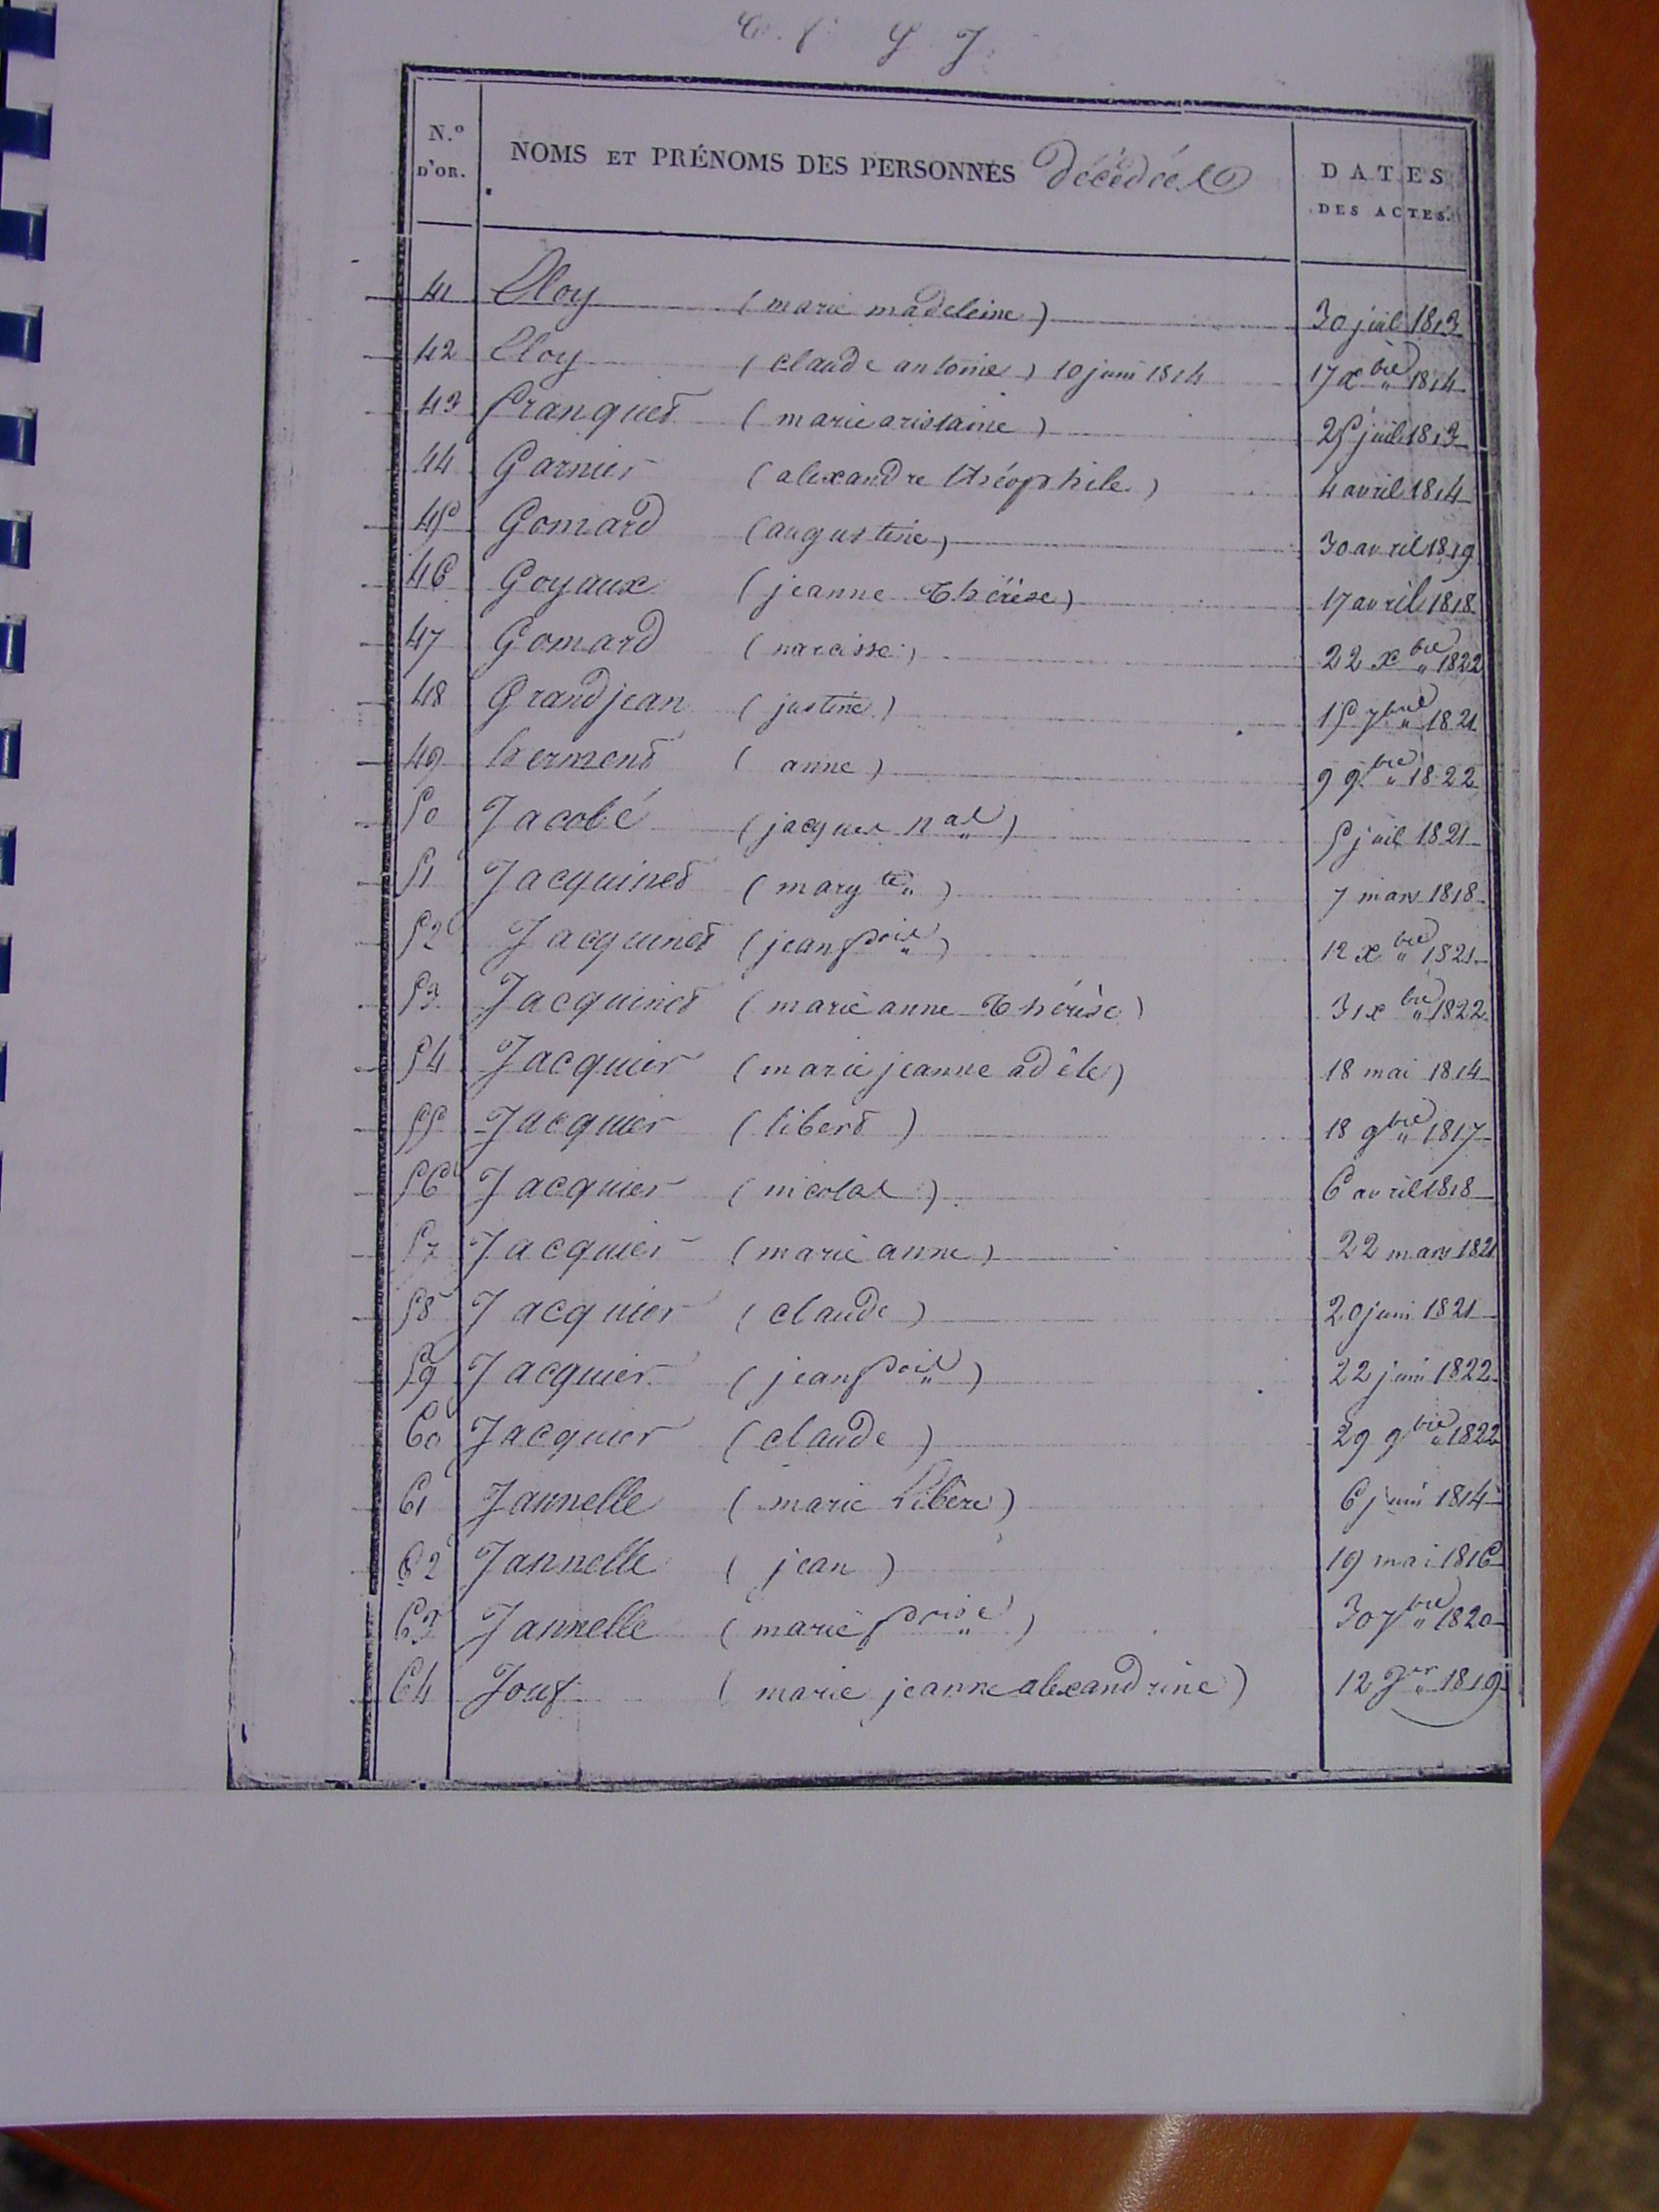 E. f. G J
N.º D'OR. NOMS ET PRÉNOMS DES PERSONNES décédées DATES DES ACTES.
41 Eloy (marie madeleine) 30 juil 1813
42 Eloy (claude antoine) 10 juin 1814 17 xbre 1814
43 franquet (marie aristaine) 25 juil 1813
44 Garnier (alexandre théophile) 4 avril 1814
45 Gomard (augustine) 30 avril 1819
46 Goyaux (jeanne Thérèse) 17 avril 1818
47 Gomard (narcisse) 22 xbre 1822
48 Grandjean (justine) 15 7bre 1821
49 hermant (anne) 9 9bre 1822
50 Jacobé (jacques nas) 5 juil 1821
51 Jacquinet (margte) 7 mars 1818
52 Jacquinet (jean fois) 12 xbre 1821
53 Jacquinet (marie anne Thérèse) 31 xbre 1822
54 Jacquier (marie jeanne adèle) 18 mai 1814
55 Jacquier (libert) 18 9bre 1817
56 Jacquier (nicolas) 6 avril 1818
57 Jacquier (marie anne) 22 mars 1821
58 Jacquier (claude) 20 juin 1821
59 Jacquier (jean fois) 22 juin 1822
60 Jacquier (claude) 29 9bre 1822
61 Jannelle (marie Libère) 6 juin 1814
62 Jannelle (jean) 19 mai 1816
63 Jannelle (marie foise) 30 7bre 1820
64 (marie jeanne alexandrine) 12 Jer 1819